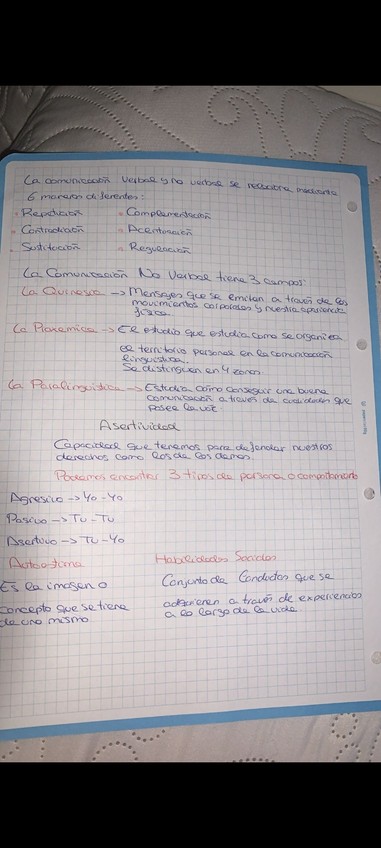 La comunicación verbal y no verbal se relaciona mediante
6 maneras diferentes:
• Repetición • Complementación
• Contradicción • Acentuación
• Sustitución • Regulación
La Comunicación No Verbal tiene 3 campos:
La Quinesia → Mensajes que se emiten a través de los
movimientos corporales y nuestra apariencia
física.
La Proxemica → Es estudio que estudia como se organiza
el territorio personal en la comunicación
lingüística.
Se distinguen en 4 zonas.
La Paralingüística → Estudia cómo conseguir una buena
comunicación a través de cualidades que
posee la voz.
Asertividad
Capacidad que tenemos para defender nuestros
derechos como los de los demás.
Podemos encontrar 3 tipos de persona o comportamiento
Agresivo → Yo - Yo
Pasivo → Tu - Tu
Asertivo → Tu - Yo
Autoestima
Es la imagen o
concepto que se tiene
de uno mismo
Habilidades Sociales
Conjunto de Conductas que se
adquieren a través de experiencias
a lo largo de la vida.